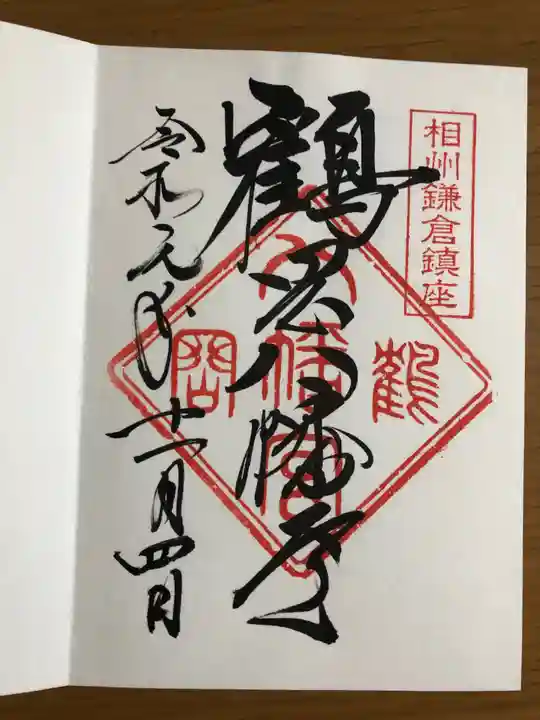 相州鎌倉鎮座
鶴岡八幡宮
鶴
岡
八幡宮
令和元年十一月四日